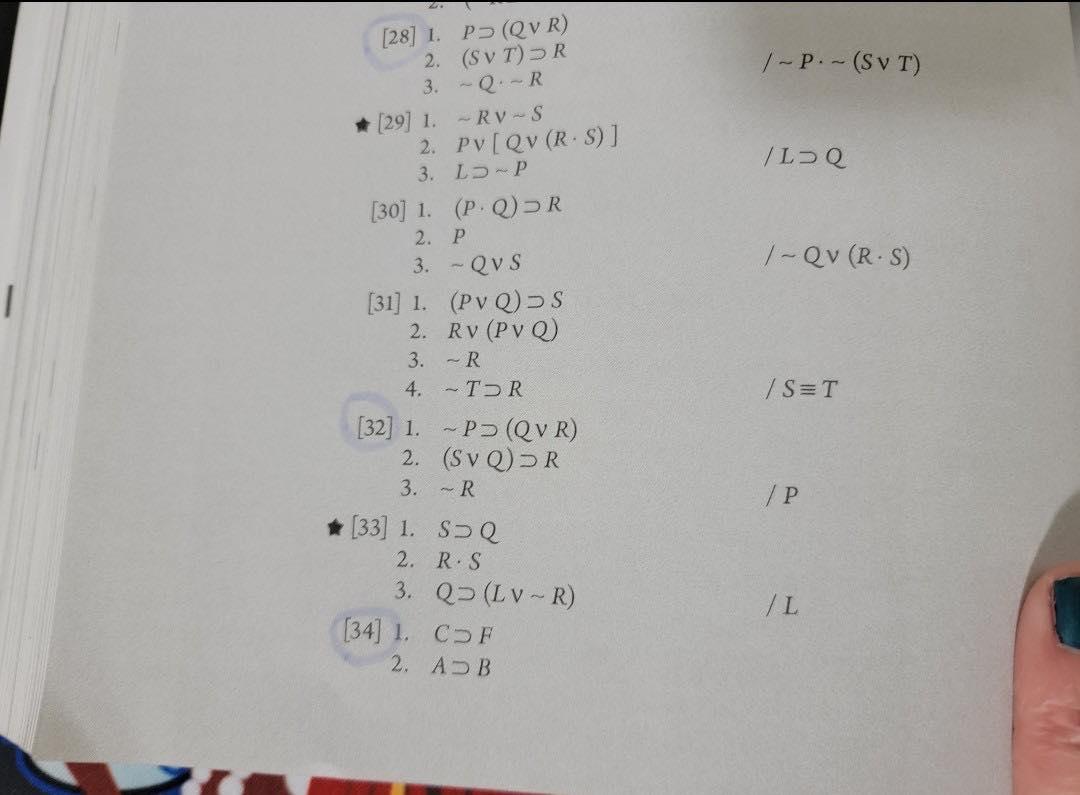 2.
[28] 1. P ⊃ (Q v R)
2. (S v T) ⊃ R
3. ~ Q · ~ R / ~ P · ~ (S v T)
★ [29] 1. ~ R v ~ S
2. P v [ Q v (R · S) ]
3. L ⊃ ~ P / L ⊃ Q
[30] 1. (P · Q) ⊃ R
2. P
3. ~ Q v S / ~ Q v (R · S)
[31] 1. (P v Q) ⊃ S
2. R v (P v Q)
3. ~ R
4. ~ T ⊃ R / S ≡ T
[32] 1. ~ P ⊃ (Q v R)
2. (S v Q) ⊃ R
3. ~ R / P
★ [33] 1. S ⊃ Q
2. R · S
3. Q ⊃ (L v ~ R) / L
[34] 1. C ⊃ F
2. A ⊃ B